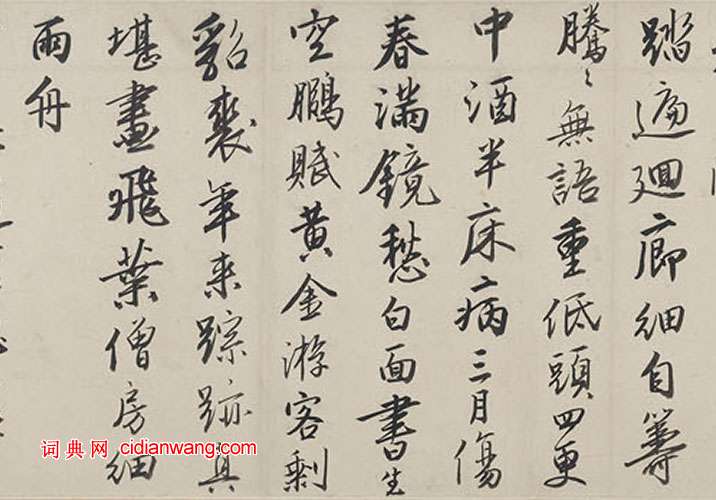 踏遍迴廊細自籌
騰〻無語重低頭四更
中酒半床病三月傷
春滿鏡愁白面書生
空鵬賦黃金游客剩
貂裘年来踪跡真
堪畫飛葉僧房細
雨舟
词典网 cidianwang.com